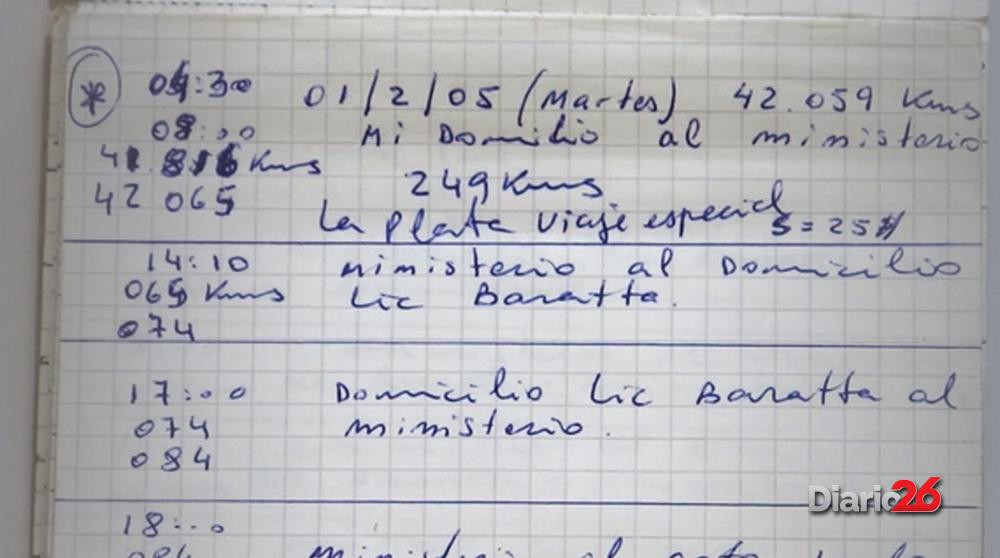 * 04:30 01/2/05 (Martes) 42.059 Kms
08:00 Mi Domicilio al ministerio
41.816 Kms 249 Kms
42 065 La Plata Viaje especial S=25
14:10 ministerio al Domicilio
065 Kms Lic Baratta.
074
17:00 Domicilio Lic Baratta al
074 ministerio.
084
18:00
084 ministerio al
Diario26